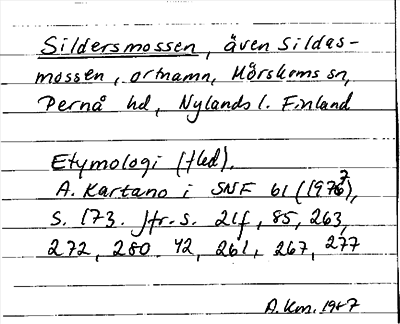 Sildersmossen, även Sildas-
mossen, ortnamn, Mörskoms sn,
Pernå hd, Nylands l. Finland
Etymologi (fled).
A. Kartano i SNF 61 (1977),
s. 173. Jfr. s. 21f, 85, 263,
272, 280. 42, 261, 267, 277
A.Km. 1987